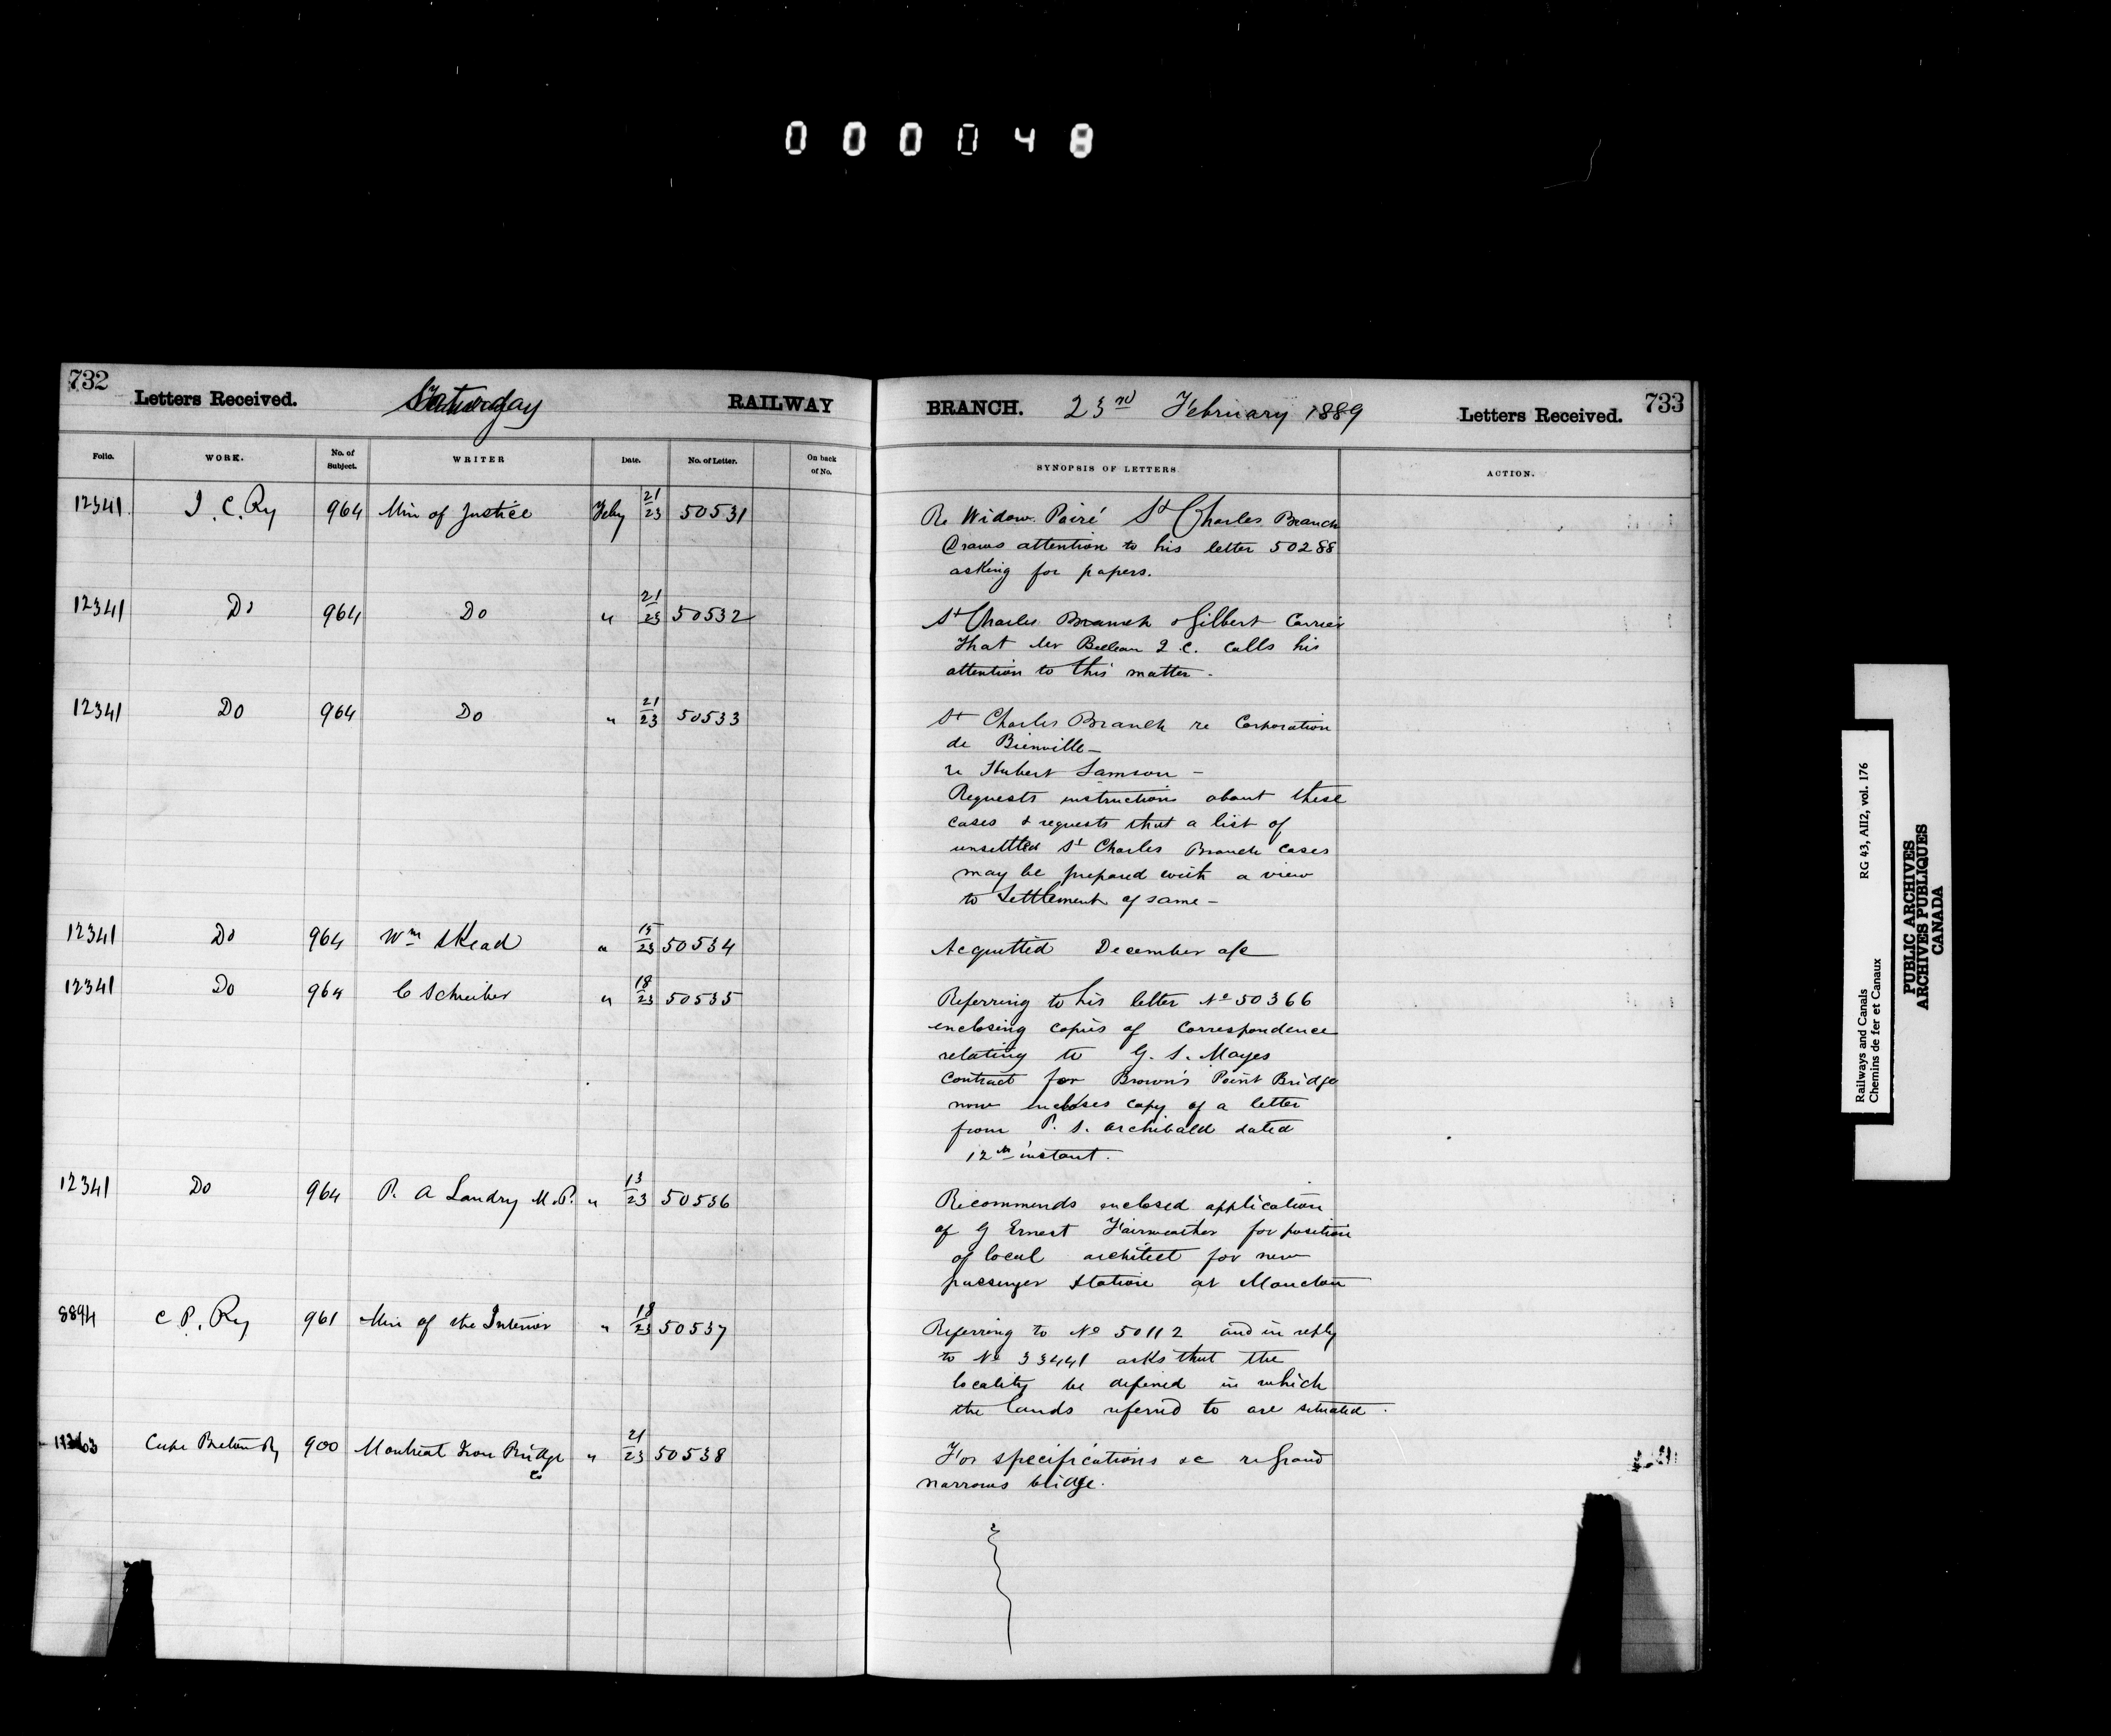 000048
732
Letters Received. Saturday RAILWAY
Folio. WORK. No. of Subject. WRITER Date. No. of Letter. On back of No.
12341 I. C. Ry 964 Min of Justice Feby 21/23 50531
12341 Do 964 Do " 21/23 50532
12341 Do 964 Do " 21/23 50533
12341 Do 964 Wm Skead " 15/23 50534
12341 Do 964 C Schreiber " 18/23 50535
12341 Do 964 P. A Landry M.P. " 13/23 50536
8894 C P. Ry 961 Min of the Interior " 18/23 50537
Cape Breton Ry 900 Montreal Iron Bridge Co " 21/23 50538
BRANCH. 23rd February 1889 Letters Received. 733
SYNOPSIS OF LETTERS ACTION.
Re Widow Poiré St Charles Branch
Draws attention to his letter 50288
asking for papers.
St Charles Branch & Gilbert Carrier
That Mr Belleau Q.C. calls his
attention to this matter.
St Charles Branch re Corporation
de Bienville—
re Hubert Samson —
Requests instructions about these
cases & requests that a list of
unsettled St Charles Branch cases
may be prepared with a view
to Settlement of same —
Acquitted December a/c
Referring to his letter No 50366
enclosing copies of correspondence
relating to G. S. Mayes
contract for Brown's Point Bridge
now encloses copy of a letter
from P. S. Archibald dated
12th instant.
Recommends enclosed application
of G Ernest Fairweather for position
of local architect for new
passenger station at Moncton
Referring to No 50112 and in reply
to No 33441 asks that the
locality be defined in which
the lands referred to are situated.
For specifications &c re Grand
narrows bridge.
Railways and Canals RG 43, AII2, vol. 176
Chemins de fer et Canaux
PUBLIC ARCHIVES
ARCHIVES PUBLIQUES
CANADA